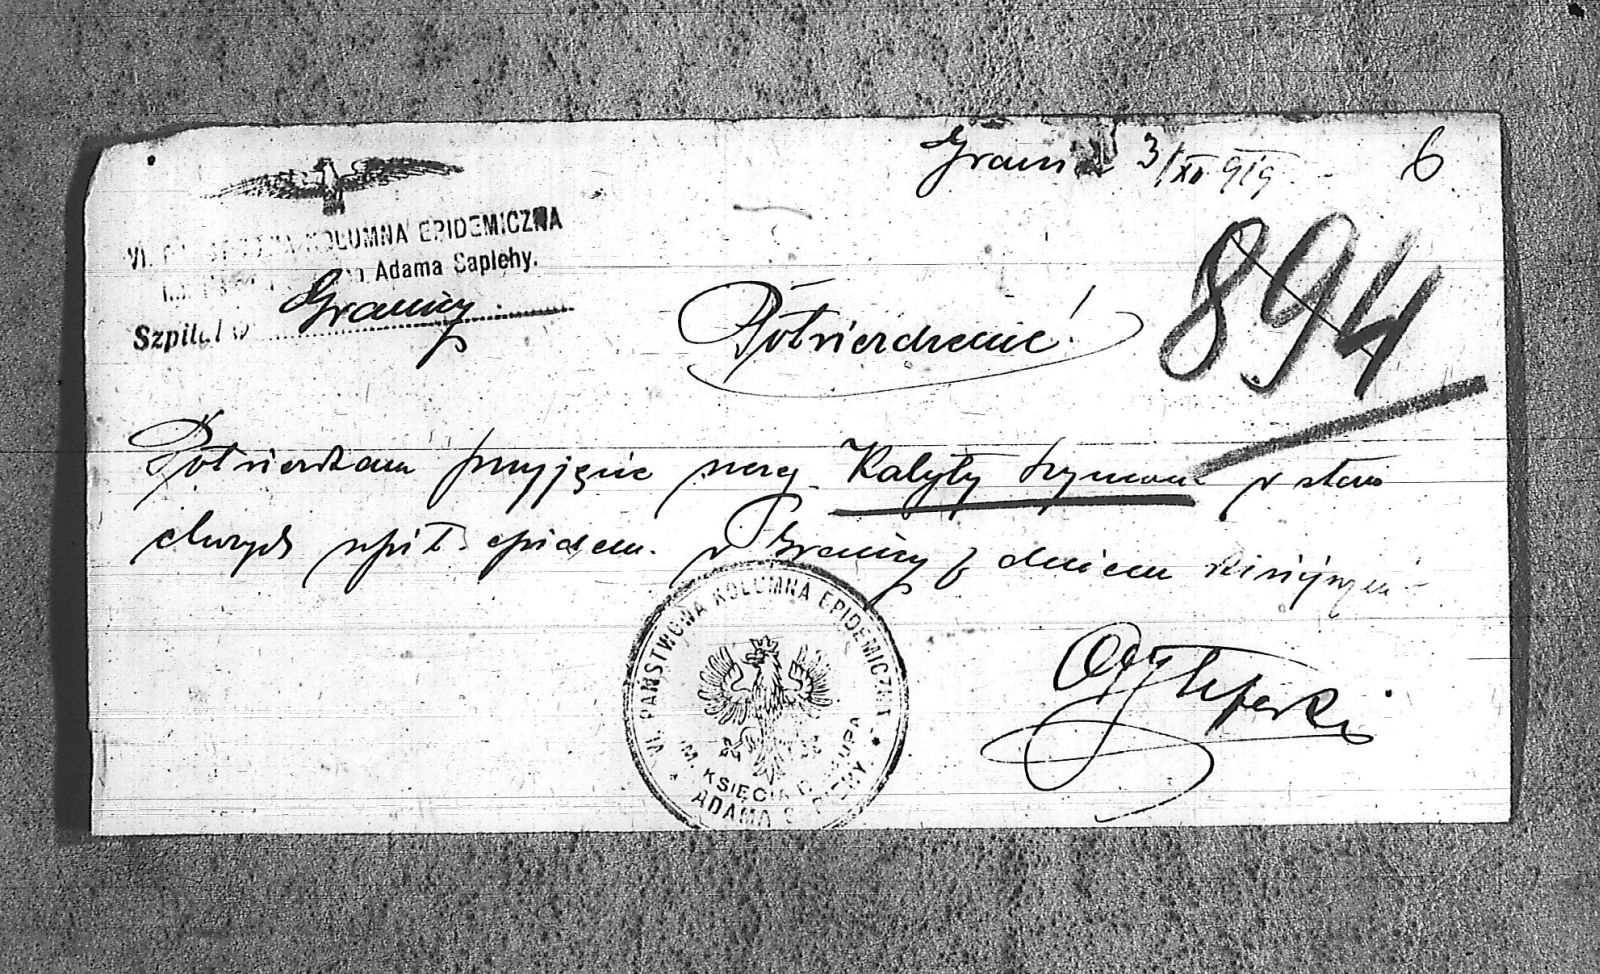 Granica 3/XII 919
6
VI. PAŃSTWOWA KOLUMNA EPIDEMICZNA
Adama Sapiehy.
Szpital w Granicy
894
Potwierdzenie!
Potwierdzam przyjęcie szereg. Kalyty Szymona w stan
chorych szpit. epidem. w Granicy z dniem dzisiejszym
VI. PAŃSTWOWA KOLUMNA EPIDEMICZNA
IM. KSIĘCIA BISKUPA
ADAMA SAPIEHY